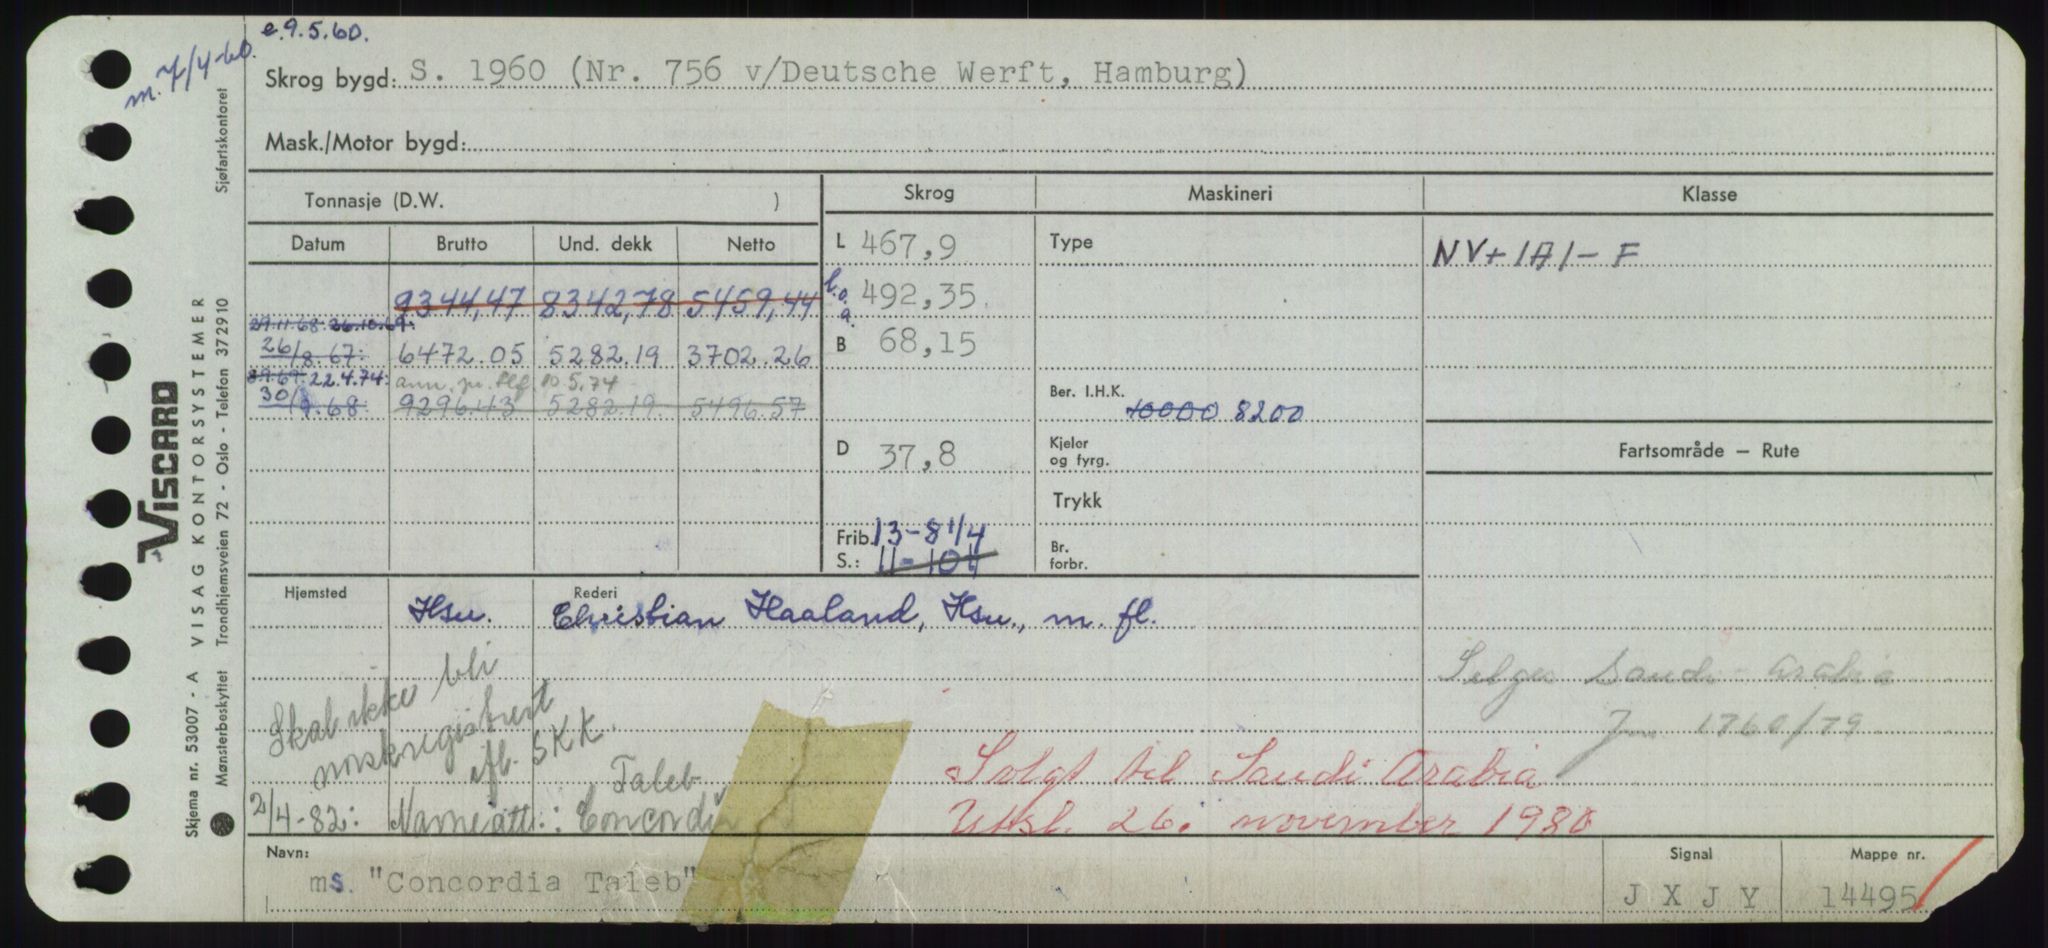 e.9.5.60.
m. 7/4-60.
Skrog bygd: S. 1960 (Nr. 756 v/Deutsche Werft, Hamburg)
Mask./Motor bygd:
Tonnasje (D.W. )
Skrog
Maskineri
Klasse
Datum Brutto Und. dekk Netto
L 467,9
Type
NV+1A1-F
9344,47 8342,78 5459,44
l.o.a. 492,35
29.11.68. 26.10.69:
26/8.67: 6472.05 5282.19 3702.26
B 68,15
8.9.69. 22.4.74: ann. pr. tlf. 10.5.74
30/9.68: 9296.43 5282.19. 5496.57
Ber. I.H.K. 10000 8200
D 37,8
Kjeler og fyrg.
Fartsområde – Rute
Trykk
Frib. 13-8 1/4
S.: 11-10 1/4
Br. forbr.
Hjemsted Hsu.
Rederi Christian Haaland, Hsu., m. fl.
Skal ikke bli
norskregistrert
ifl. SKK.
Selges Saudi-Arabia
Jnr. 1760/79
Solgt til Saudi Arabia
Utsl. 26. november 1980
Taleb
2/4-82: Navneatt.: Concordia
Navn: ms. "Concordia Taleb"
Signal J X J Y
Mappe nr. 14495
Sjøfartskontoret
VISCARD
VISAG KONTORSYSTEMER
Trondhjemsveien 72 - Oslo - Telefon 372910
Skjema nr. 53007 - A
Mønsterbeskyttet